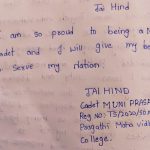 Jai Hind
I am so proud to being a N
Cadet and I will give my be
to serve my Nation.
JAI HIND
Cadet MUNI PRASA
Reg No: TS/2020/SD
Pragathi Maha vidh
College.